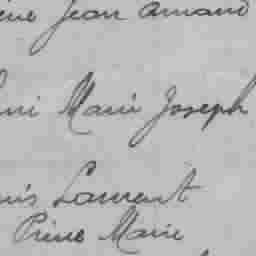 Jean Armand
Marie Joseph
Laurent
Pierre Marie